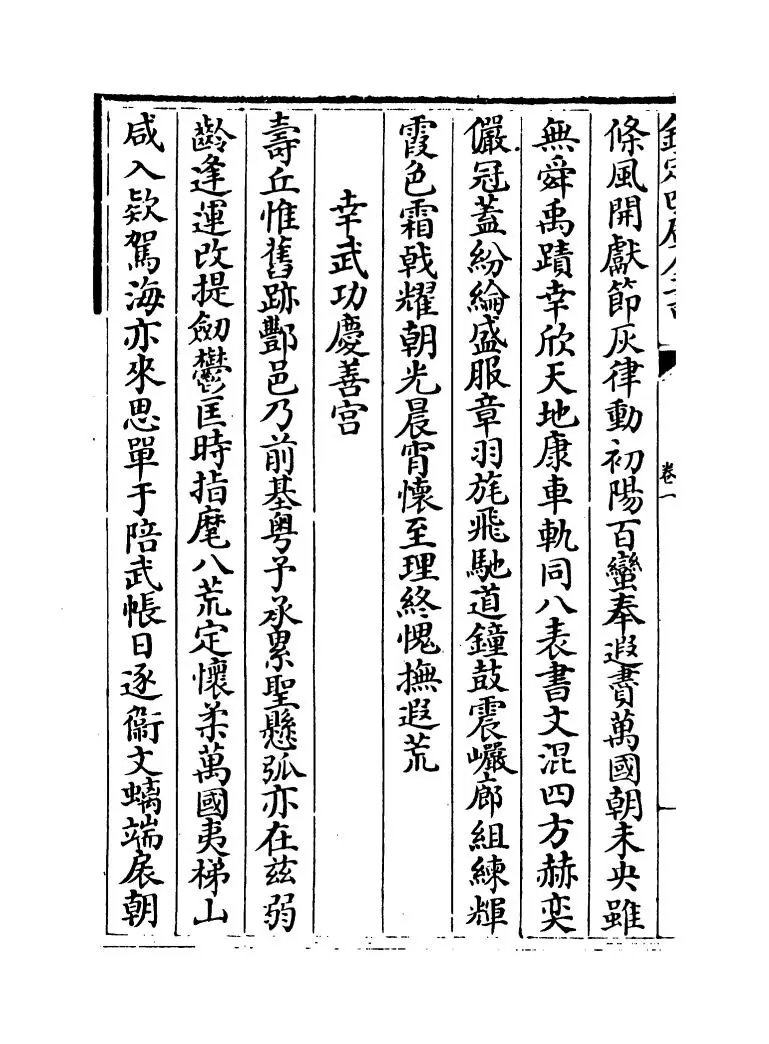 欽定四庫全書
卷一
條風開獻節灰律動初陽百蠻奉遐賮萬國朝未央雖
無舜禹蹟幸欣天地康車軌同八表書文混四方赫奕
儼冠蓋紛綸盛服章羽旄飛馳道鐘鼓震巖廊組練輝
霞色霜戟耀朝光晨宵懷至理終愧撫遐荒
幸武功慶善宮
壽丘惟舊跡酆邑乃前基粵予承累聖懸弧亦在兹弱
齡逢運改提劒鬱匡時指麾八荒定懷柔萬國夷梯山
咸入欵駕海亦來思單于陪武帳日逐衞文㮰端扆朝